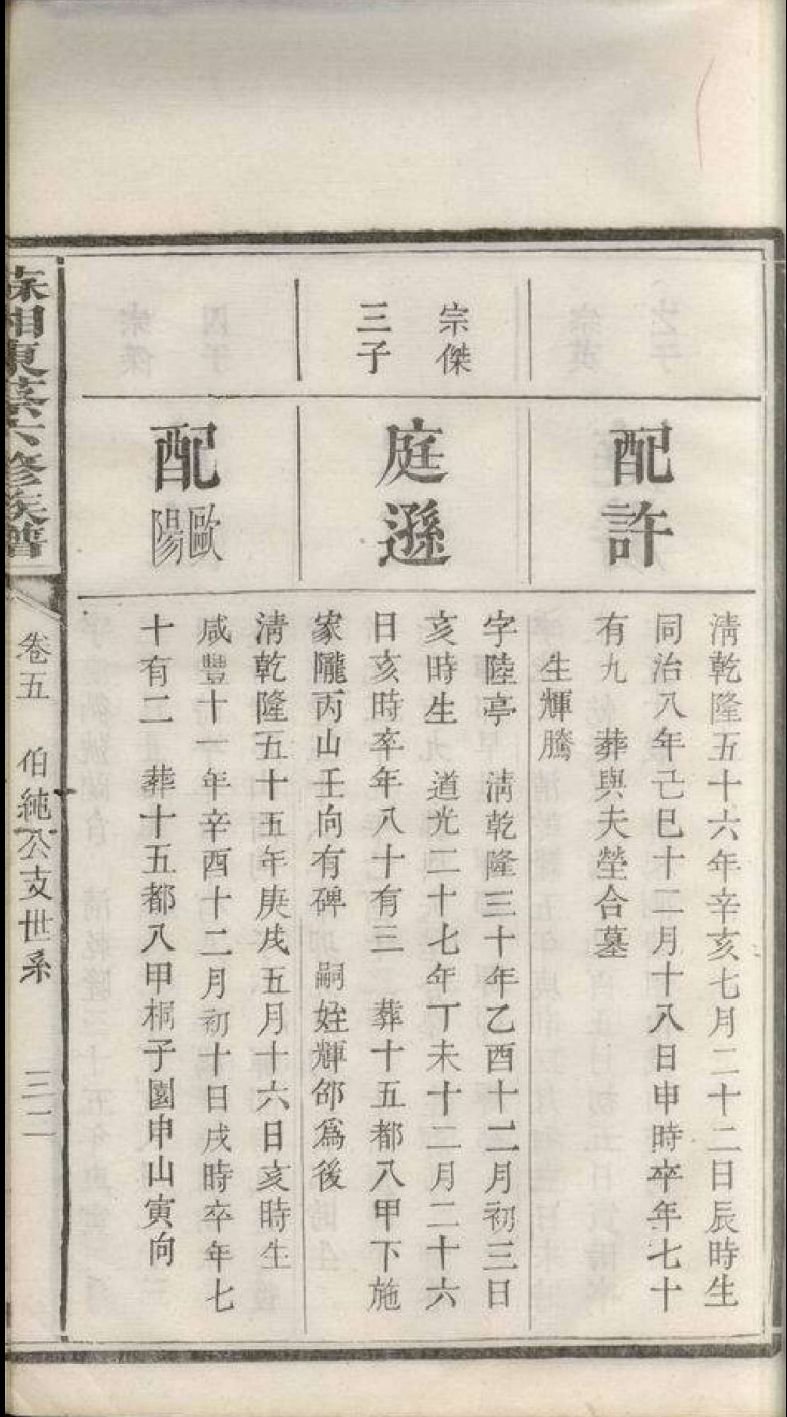 配許
清乾隆五十六年辛亥七月二十二日辰時生
同治八年己巳十二月十八日申時卒年七十
有九　葬與夫塋合墓
生輝騰
宗傑
三子
庭遜
字陸亭　淸乾隆三十年乙酉十二月初三日
亥時生　道光二十七年丁未十二月二十六
日亥時卒年八十有三　葬十五都八甲下施
家隴丙山壬向有碑　嗣姪輝郃爲後
配歐陽
淸乾隆五十五年庚戌五月十六日亥時生
咸豐十一年辛酉十二月初十日戌時卒年七
十有二　葬十五都八甲桐子園申山寅向
湘東蔡六修族譜
卷五　伯純公支世系　三二